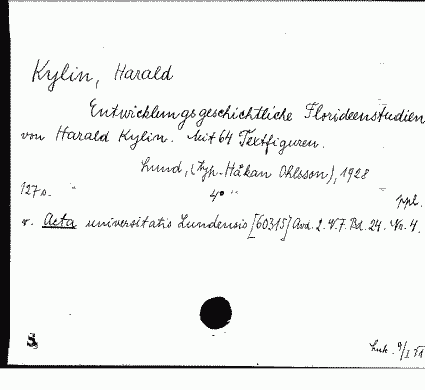 Kylin, Harald
Entwicklungsgeschichtliche Florideenstudien
von Harald Kylin. Mit 64 Textfiguren.
Lund, (typ. Håkan Ohlsson), 1928
127 s. 4° ppl.
v. Acta universitatis Lundensis [60315] Avd. 2. N.F. Bd. 24. Nr. 4.
9/I 51